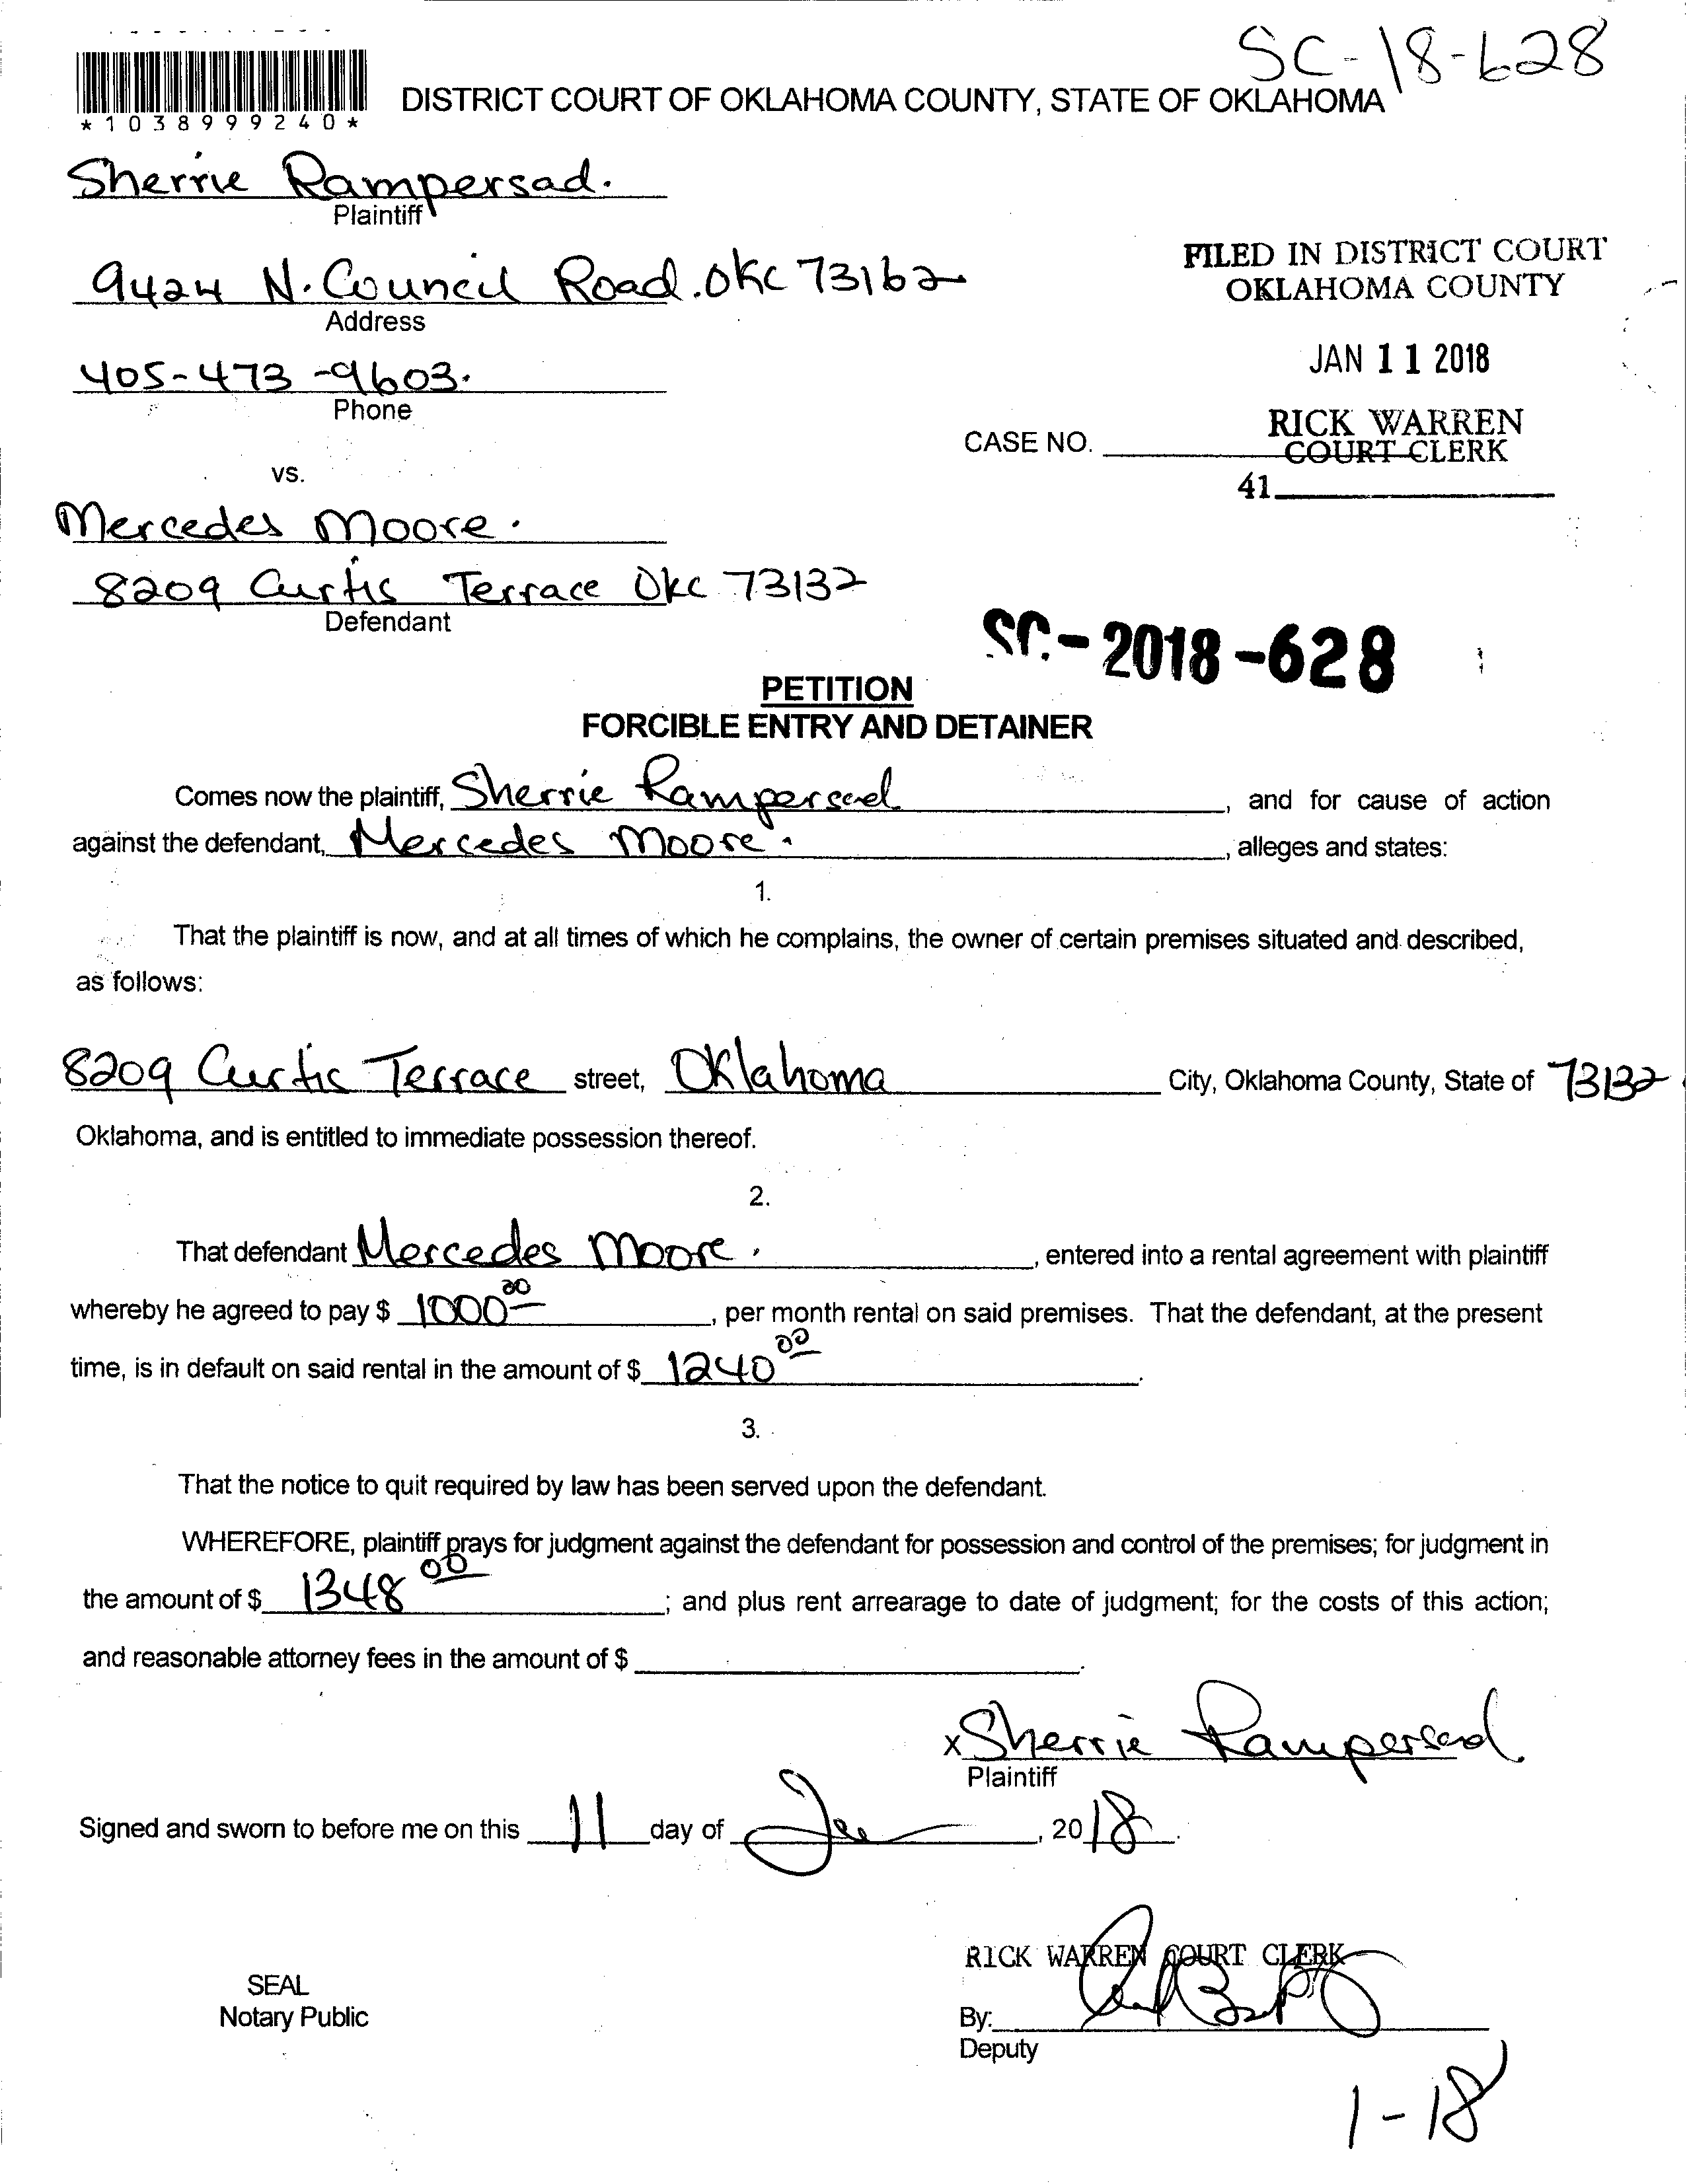 SC-18-628
*1038999240*
DISTRICT COURT OF OKLAHOMA COUNTY, STATE OF OKLAHOMA
Sherrie Rampersad.
Plaintiff
9424 N. Council Road. OKC 73162
Address
405-473-9603.
Phone
FILED IN DISTRICT COURT
OKLAHOMA COUNTY
JAN 11 2018
RICK WARREN
COURT CLERK
41
CASE NO.
vs.
Mercedes Moore.
8209 Curtis Terrace OKC 73132
Defendant
SC-2018-628
PETITION
FORCIBLE ENTRY AND DETAINER
Comes now the plaintiff, Sherrie Rampersad, and for cause of action
against the defendant, Mercedes Moore., alleges and states:
1.
That the plaintiff is now, and at all times of which he complains, the owner of certain premises situated and described,
as follows:
8209 Curtis Terrace street, Oklahoma City, Oklahoma County, State of 73132
Oklahoma, and is entitled to immediate possession thereof.
2.
That defendant Mercedes Moore., entered into a rental agreement with plaintiff
whereby he agreed to pay $ 1000 00, per month rental on said premises. That the defendant, at the present
time, is in default on said rental in the amount of $ 1240 00.
3.
That the notice to quit required by law has been served upon the defendant.
WHEREFORE, plaintiff prays for judgment against the defendant for possession and control of the premises; for judgment in
the amount of $ 1348 00; and plus rent arrearage to date of judgment; for the costs of this action;
and reasonable attorney fees in the amount of $ .
x Sherrie Rampersad
Plaintiff
Signed and sworn to before me on this 11 day of , 2018.
RICK WARREN COURT CLERK
SEAL
Notary Public
By:
Deputy
1-18